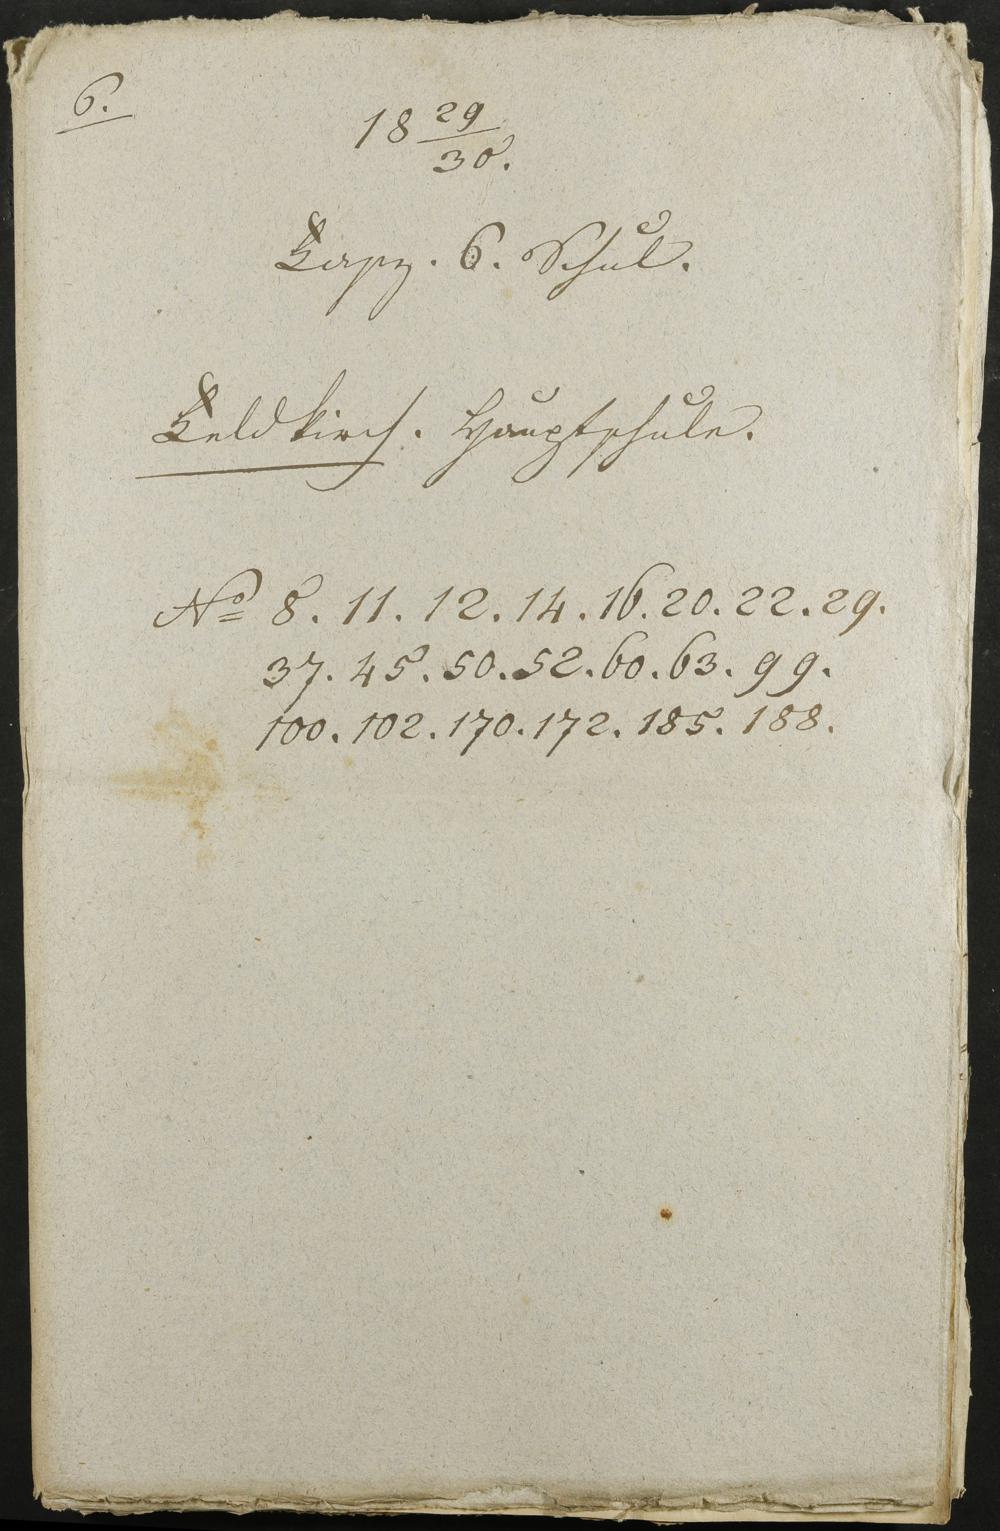 6.
18 29/30.
Fasz. 6. Schul.
Feldkirch. Hauptschule.
No 8. 11. 12. 14. 16. 20. 22. 29.
37. 45. 50. 52. 60. 63. 99.
100. 102. 170. 172. 185. 188.